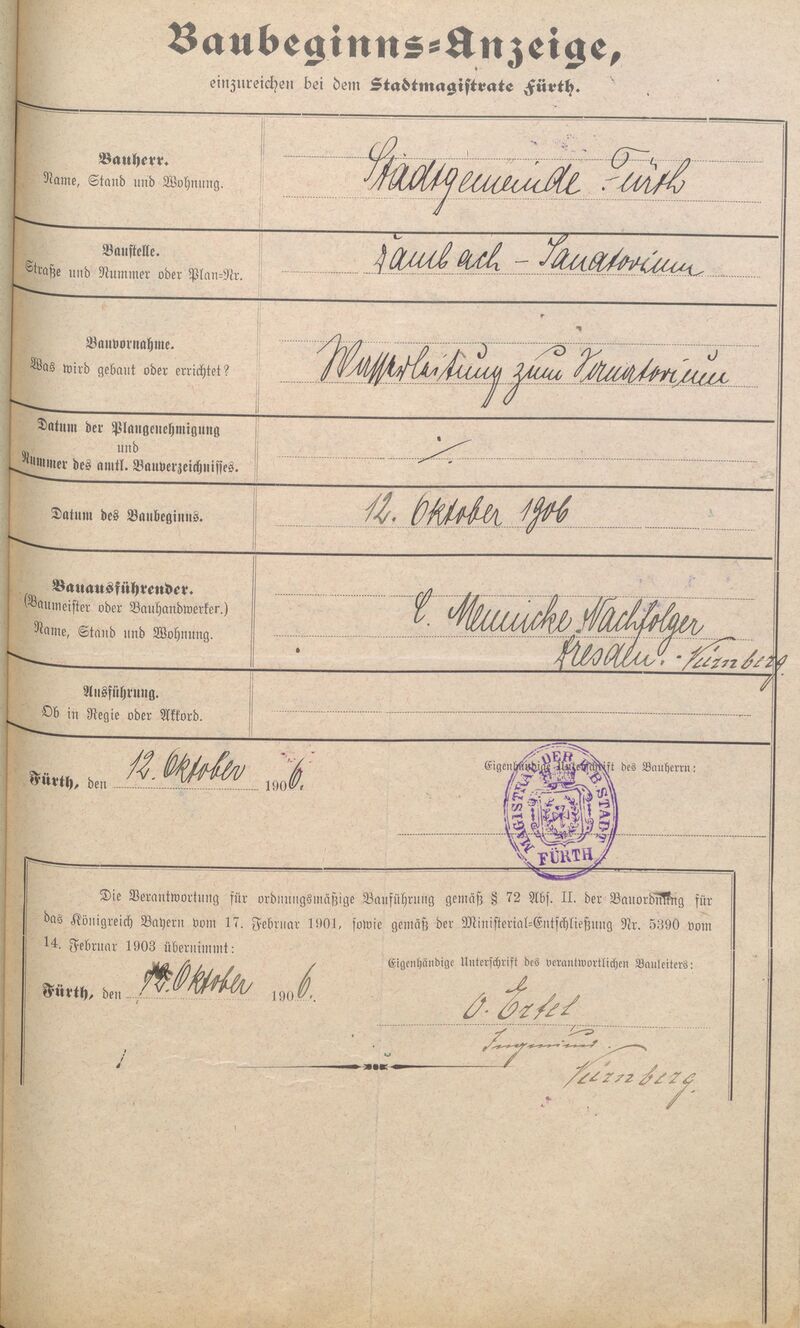 Baubeginns-Anzeige,
einzureichen bei dem Stadtmagistrate Fürth.
Bauherr.
Name, Stand und Wohnung.
Stadtgemeinde Fürth
Baustelle.
Straße und Nummer oder Plan-Nr.
Dambach - Sanatorium
Bauvornahme.
Was wird gebaut oder errichtet?
Wasserleitung zum Sanatorium
Datum der Plangenehmigung
und
Nummer des amtl. Bauverzeichnisses.
./.
Datum des Baubeginns.
12. Oktober 1906
Bauausführender.
(Baumeister oder Bauhandwerker.)
Name, Stand und Wohnung.
C. Mennicke Nachfolger
Dresden. - Nürnberg.
Ausführung.
Ob in Regie oder Akkord.
Fürth, den 12. Oktober 1906.
Eigenhändige Unterschrift des Bauherrn:
MAGISTRAT DER STADT
FÜRTH
Die Verantwortung für ordnungsmäßige Bauführung gemäß § 72 Abs. II. der Bauordnung für
das Königreich Bayern vom 17. Februar 1901, sowie gemäß der Ministerial-Entschließung Nr. 5390 vom
14. Februar 1903 übernimmt:
Eigenhändige Unterschrift des verantwortlichen Bauleiters:
Fürth, den 12. Oktober 1906.
O. Ertel
Ingenieur
Nürnberg.